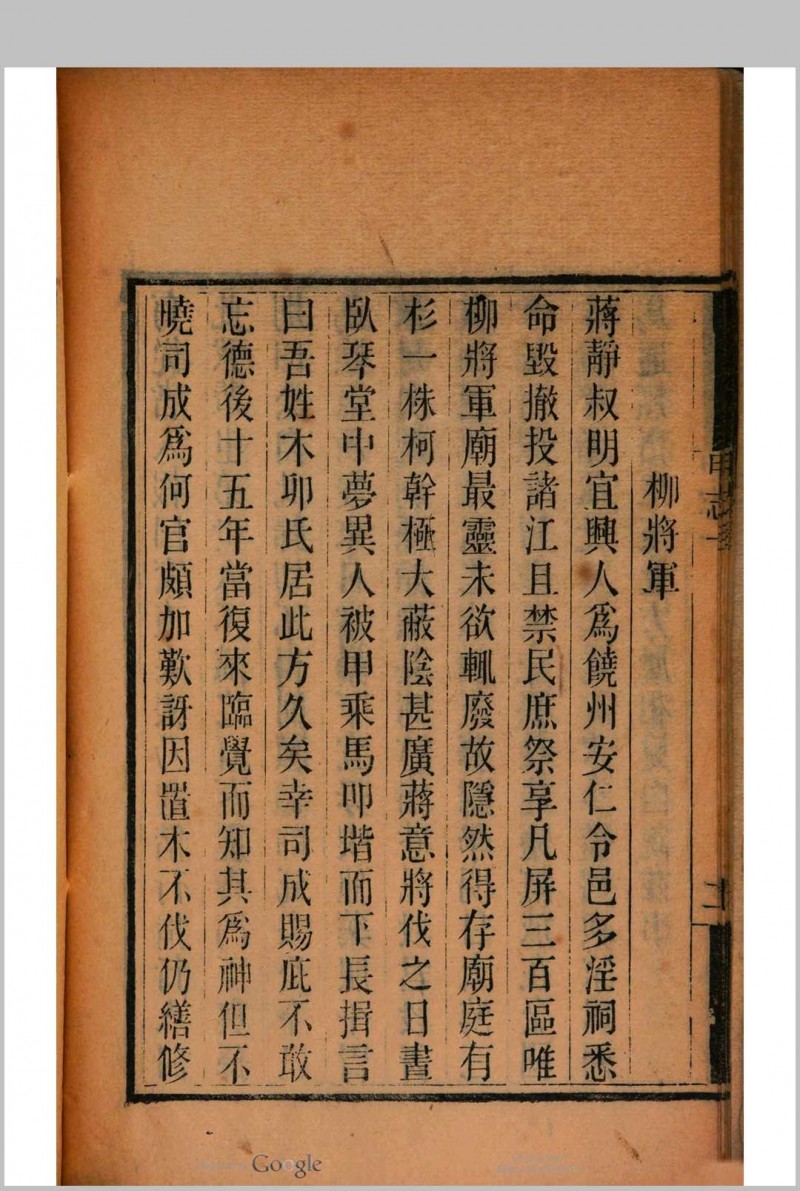 柳將軍
蔣靜叔明宜興人爲饒州安仁令邑多淫祠悉
命毀撤投諸江且禁民庶祭享凡屏三百區唯
柳將軍廟最靈未欲輒廢故隱然得存廟庭有
杉一株柯幹極大蔽陰甚廣蔣意將伐之日晝
臥琴堂中夢異人被甲乘馬叩堦而下長揖言
曰吾姓木卯氏居此方久矣幸司成賜庇不敢
忘德後十五年當復來臨覺而知其爲神但不
曉司成爲何官頗加歎訝因置木不伐仍繕修
Google